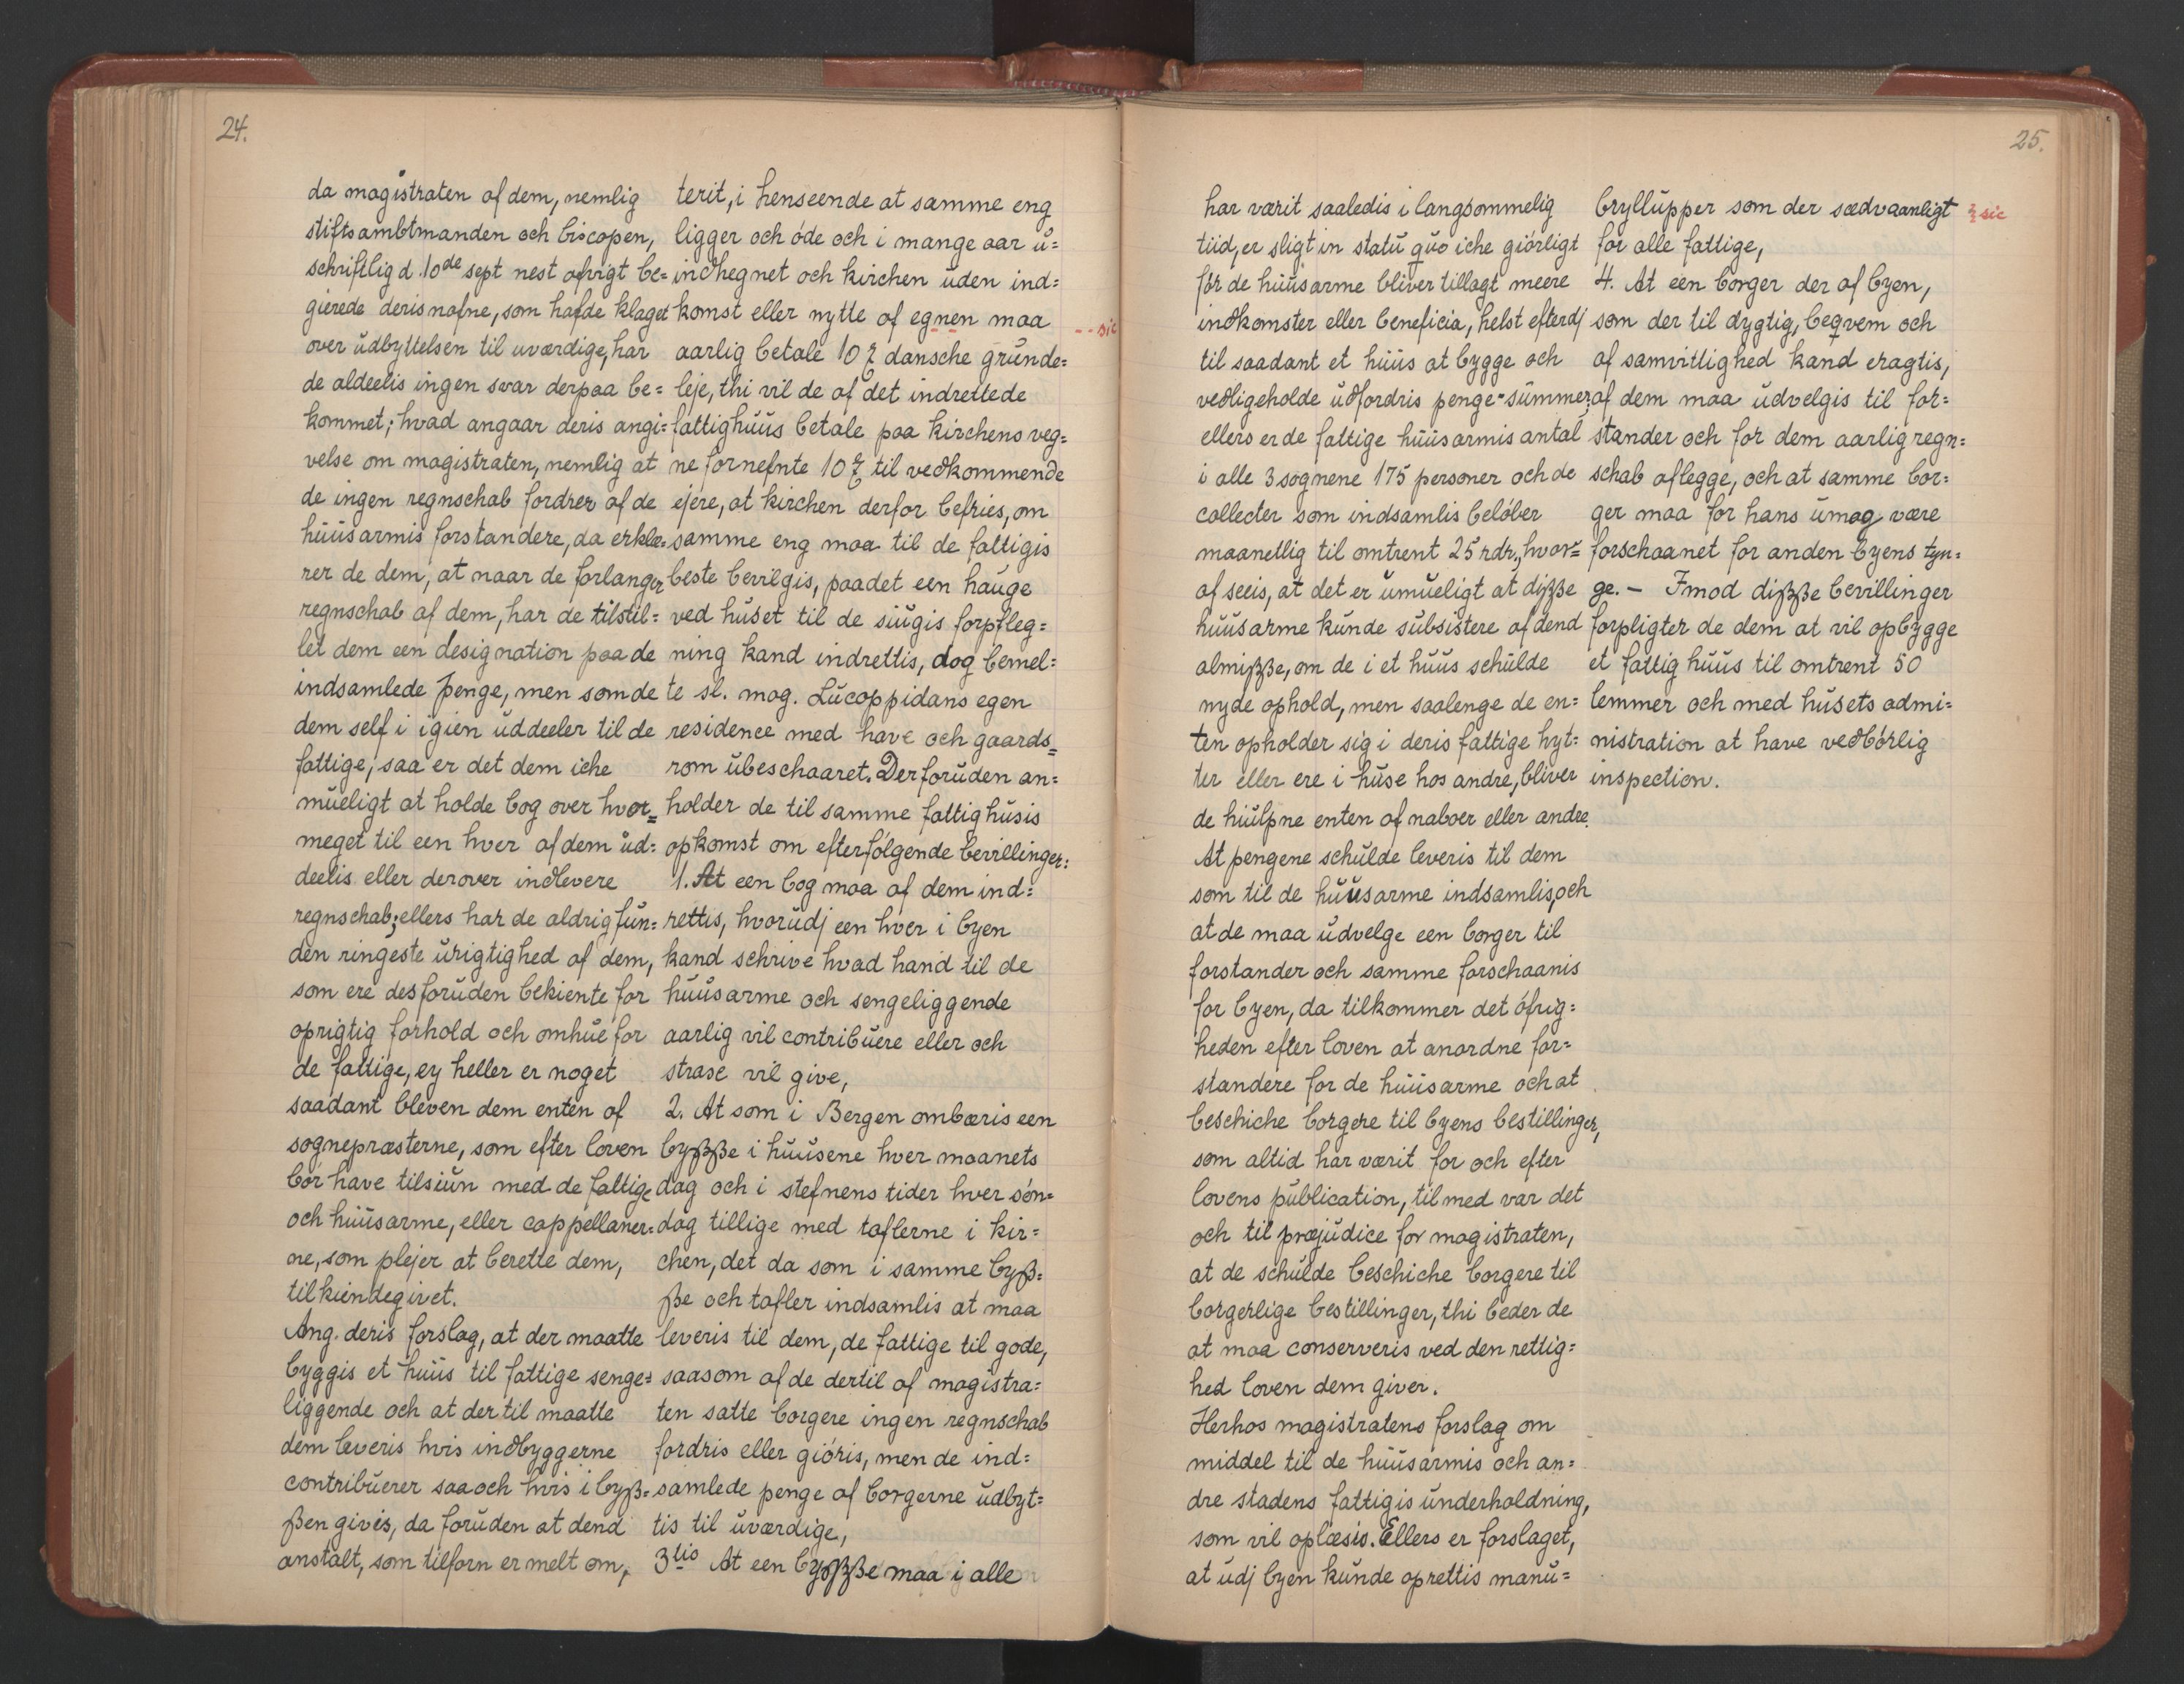 24.
da magistraten af dem, nemlig
stiftsambtmanden och biscopen,
schriftlig d. 10de sept nest afvigt be=
gierede deris nafne, som hafde klaget
over udbyttelsen til uværdige, har
de aldeelis ingen svar derpaa be=
kommet; hvad angaar deris angi=
velse om magistraten, nemlig at
de ingen regnschab fordrer af de
huusarmis forstandere, da erklæ=
rer de dem, at naar de forlanger
regnschab af dem, har de tilstil=
let dem een designation paa de
indsamlede penge, men som de
dem self i igien uddeeler til de
fattige, saa er det dem iche
mueligt at holde bog over hvor=
meget til een hver af dem ud=
deelis eller derover indlevere
regnschab; ellers har de aldrig fun=
den ringeste urigtighed af dem,
som ere desforuden bekiente for
oprigtig forhold och omhue for
de fattige, ey heller er noget
saadant bleven dem enten af
sognepræsterne, som efter loven
bór have tilsiun med de fattige
och huusarme, eller cappellaner=
ne, som plejer at berette dem,
tilkiendegivet.
Ang. deris forslag, at der maatte
byggis et huus til fattige senge=
liggende och at dertil maatte
dem leveris hvis indbyggerne
contribuerer saa och hvis i byß=
ßen givis, da foruden at dend
anstalt, som tilforn er melt om,
terit, i henseende at samme eng
ligger och óde och i mange aar u=
indhegnet och kirchen uden ind=
komst eller nytte af egnen maa -- sic
aarlig betale 10 ȝ dansche grunde=
leje, thi vil de af det indrettede
fattighuus betale paa kirchens veg=
ne fornefnte 10 ȝ til vedkommende
ejere, at kirchen derfor befries, om
samme eng maa til de fattigis
beste bevilgis, paadet een hauge
ved huset til de siugis forpfleg=
ning kand indrettis, dog bemel=
te sl. mag. Lucoppidans egen
residence med have och gaards=
rom ubeschaaret. Derforuden an=
holder de til samme fattighusis
opkomst om efterfólgende bevillinger:
1. At een bog maa af dem ind=
rettis, hvorudj een hver i byen
kand schrive hvad hand til de
huusarme och sengeliggende
aarlig vil contribuere eller och
strase vil give,
2. At som i Bergen ombæris een
byßße i huusene hver maanets
dag och i stefnens tider hver són=
dag tillige med taflerne i kir=
chen, det da som i samme byß=
ße och tafler indsamlis at maa
leveris til dem, de fattige til gode,
saasom af de dertil af magistra=
ten satte borgere ingen regnschab
fordris eller gióris, men de ind=
samlede penge af borgerne udbyt=
tis til uværdige,
3tio At een byßße maa i alle
25.
har værit saaledis i langsommelig
tiid, er sligt in statu quo iche giórligt
fór de huusarme bliver tillagt meere
indkomster eller beneficia, helst efterdj
til saadant et huus at bygge och
vedligeholde udfordris penge-summer;
ellers er de fattige huusarmis antal
i alle 3 sognene 175 personer och de
collecter som indsamlis belóber
maanetlig til omtrent 25 rdr., hvor=
af seeis, at det er umueligt at dißße
huusarme kunde subsistere af dend
almißße, om de i et huus schulde
nyde ophold, men saalenge de en=
ten opholder sig i deris fattige hyt=
ter eller ere i huse hos andre, bliver
de hiulpne enten af naboer eller andre.
At pengene schulde leveris til dem
som til de huusarme indsamlis, och
at de maa udvelge een borger til
forstander och samme forschaanis
for byen, da tilkommer det ófrig=
heden efter loven at anordne for=
standere for de huusarme och at
beschiche borgere til byens bestillinger,
som altid har værit for och efter
lovens publication, tilmed var det
och til præjudice for magistraten,
at de schulde beschiche borgere til
borgerlige bestillinger, thi beder de
at maa conserveris ved den rettig=
hed loven dem giver.
Herhos magistratens forslag om
middel til de huusarmis och an=
dre stadens fattigis underholdning,
som vil oplæsis. Ellers er forslaget,
at udj byen kunde oprettis manu=
bryllupper som der sædvaanligt sic
for alle fattige,
4. At een borger der af byen,
som der til dygtig, beqvem och
af samvittighed kand eragtis,
af dem maa udvelgis til for=
stander och for dem aarlig regn=
schab aflegge, och at samme bor=
ger maa for hans umag være
forschaanet for anden byens tyn=
ge. — Imod dißße bevillinger
forpligter de dem at vil opbygge
et fattig huus til omtrent 50
lemmer och med husets admi=
nistration at have vedbórlig
inspection.